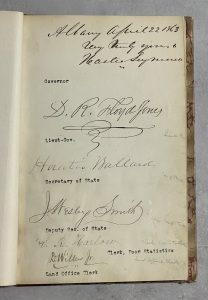 Albany April 22 1863
Very truly yours
Horatio Seymour
Governor
D. R. Floyd Jones
Lieut-Gov.
Horatio Ballard
Secretary of State
J. Wesley Smith
Deputy Sec. of State
Harlow
Clerk, Poor Statistics
Willer Jr
Land Office Clerk